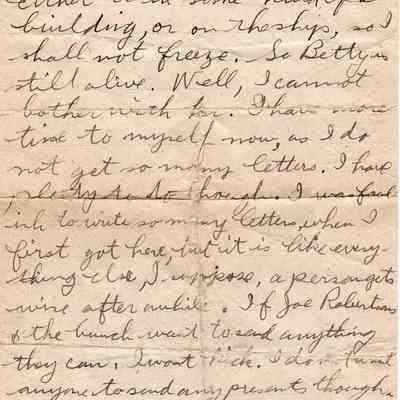 either in some kind of a
building, or on the ship, so I
shall not freeze. So Betty is
still alive. Well, I cannot
bother with her. I have more
time to myself now, as I do
not get so many letters. I have
plenty to do though. I was fool
ish to write so many letters, when I
first got here, but it is like every-
thing else, I suppose, a person gets
wise after awhile. If Joe Robertson
& the bunch want to send anything
they can. I wont kick. I don't want
anyone to send any presents though.